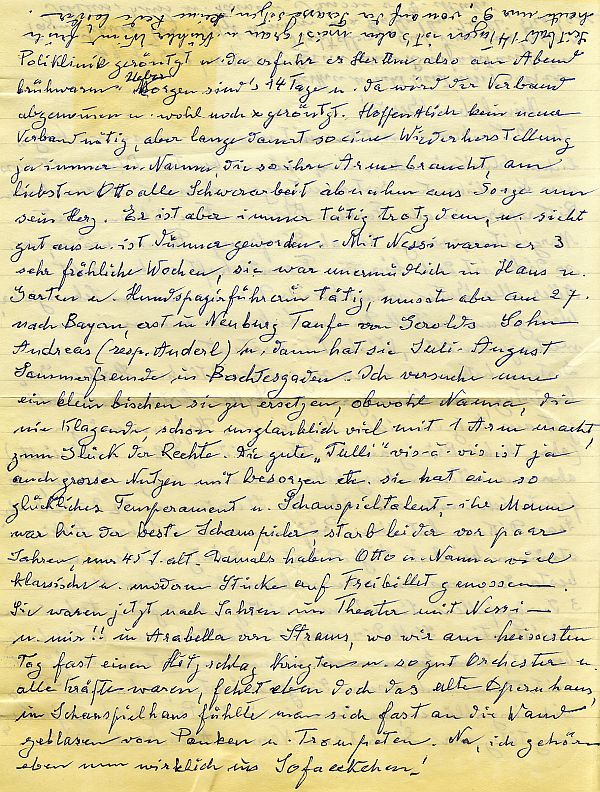 Poliklinik geröntgt u. da erfuhr er
also am Abend
Morgen sind's 14 Tage u. da wird der Verband
abgenommen u. wohl noch x geröntgt. Hoffentlich kein neuer
Verband nötig, aber lange dauert so eine Wiederherstellung
ja immer u. Nanna, die so ihre Arme braucht, am
liebsten Otto alle Schwerarbeit abnahm aus Sorge um
sein Herz. Er ist aber immer tätig trotzdem, u. sieht
gut aus u. ist dünner geworden. - Mit Nessi waren es 3
sehr fröhliche Wochen, sie war unermüdlich in Haus u.
Garten u. Hundspazirführerin tätig, musste aber am 27.
nach Bayern, erst in Neuburg Taufe von Gerolds Sohn
Andreas (resp. Anderl) u. dann hat sie Juli - August
Sommerfreunde in Berchtesgaden. Ich versuche nun
ein klein bischen sie zu ersetzen, obwohl Nanna, die
nie Klagende, schon unglaublich viel mit 1 Arm macht,
zum Glück der Rechte. Die gute "Tulli" vis-à-vis ist ja
auch grosser Nutzen mit besorgen etc. sie hat ein so
glückliches Temperament u. Schauspieltalent, - ihr Mann
war hier der beste Schauspieler, starb leider vor paar
Jahren, nur 45 J. alt. Damals haben Otto u. Nanna viel
klassische u. modern Stücke auf Freibillet genossen.
Sie waren jetzt nach Jahren im Theater mit Nessi -
u. mir!! in Arabella von Strauss, wo wir am heissesten
Tag fast einen Hitzschlag kriegten u. so gut Orchester u.
alle Kräfte waren, fehlt eben doch das alte Opernhaus,
in Schauspielhaus fühlte man sich fast an die Wand
geblasen von Pauken u. Trompeten. Na, ich gehör
eben nun wirklich ins Sofaeckchen!